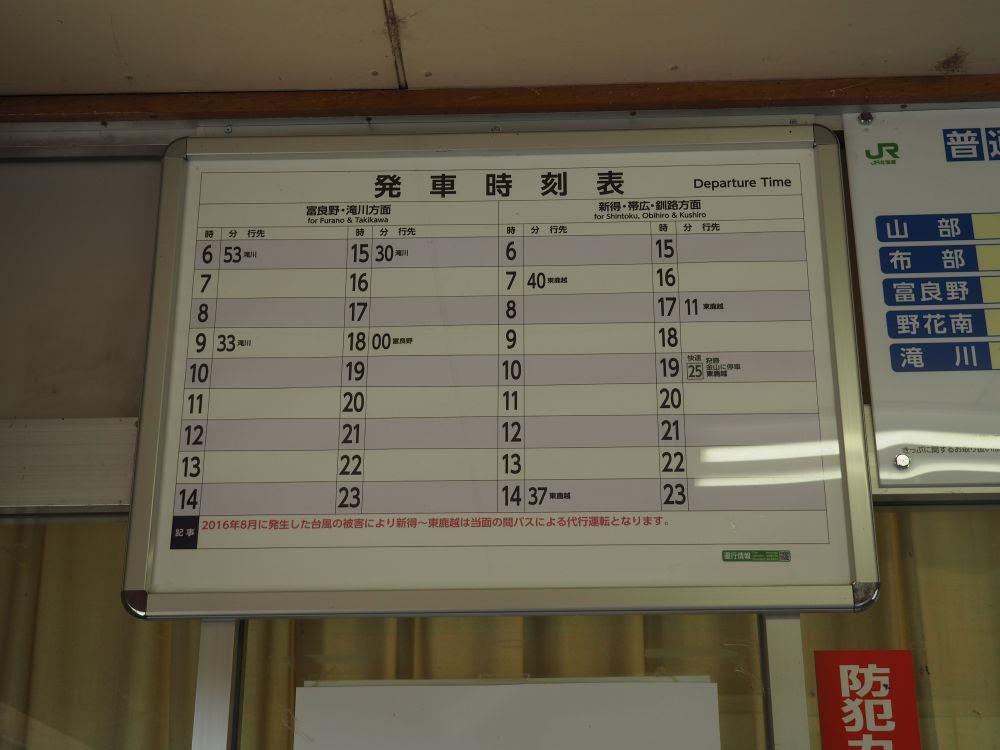 発車時刻表 Departure Time
富良野・滝川方面
for Furano & Takikawa
新得・帯広・釧路方面
for Shintoku, Obihiro & Kushiro
時 分 行先 時 分 行先 時 分 行先 時 分 行先
6 53 滝川 15 30 滝川 6 15
7 16 7 40 東鹿越 16
8 17 8 17 11 東鹿越
9 33 滝川 18 00 富良野 9 18
10 19 10 19 快速 25 金山に停車 東鹿越
11 20 11 20
12 21 12 21
13 22 13 22
14 23 14 37 東鹿越 23
記事 2016年8月に発生した台風の被害により新得～東鹿越は当面の間バスによる代行運転となります。
運行情報
JR 普通
JR北海道
山部
布部
富良野
野花南
滝川
防犯カ